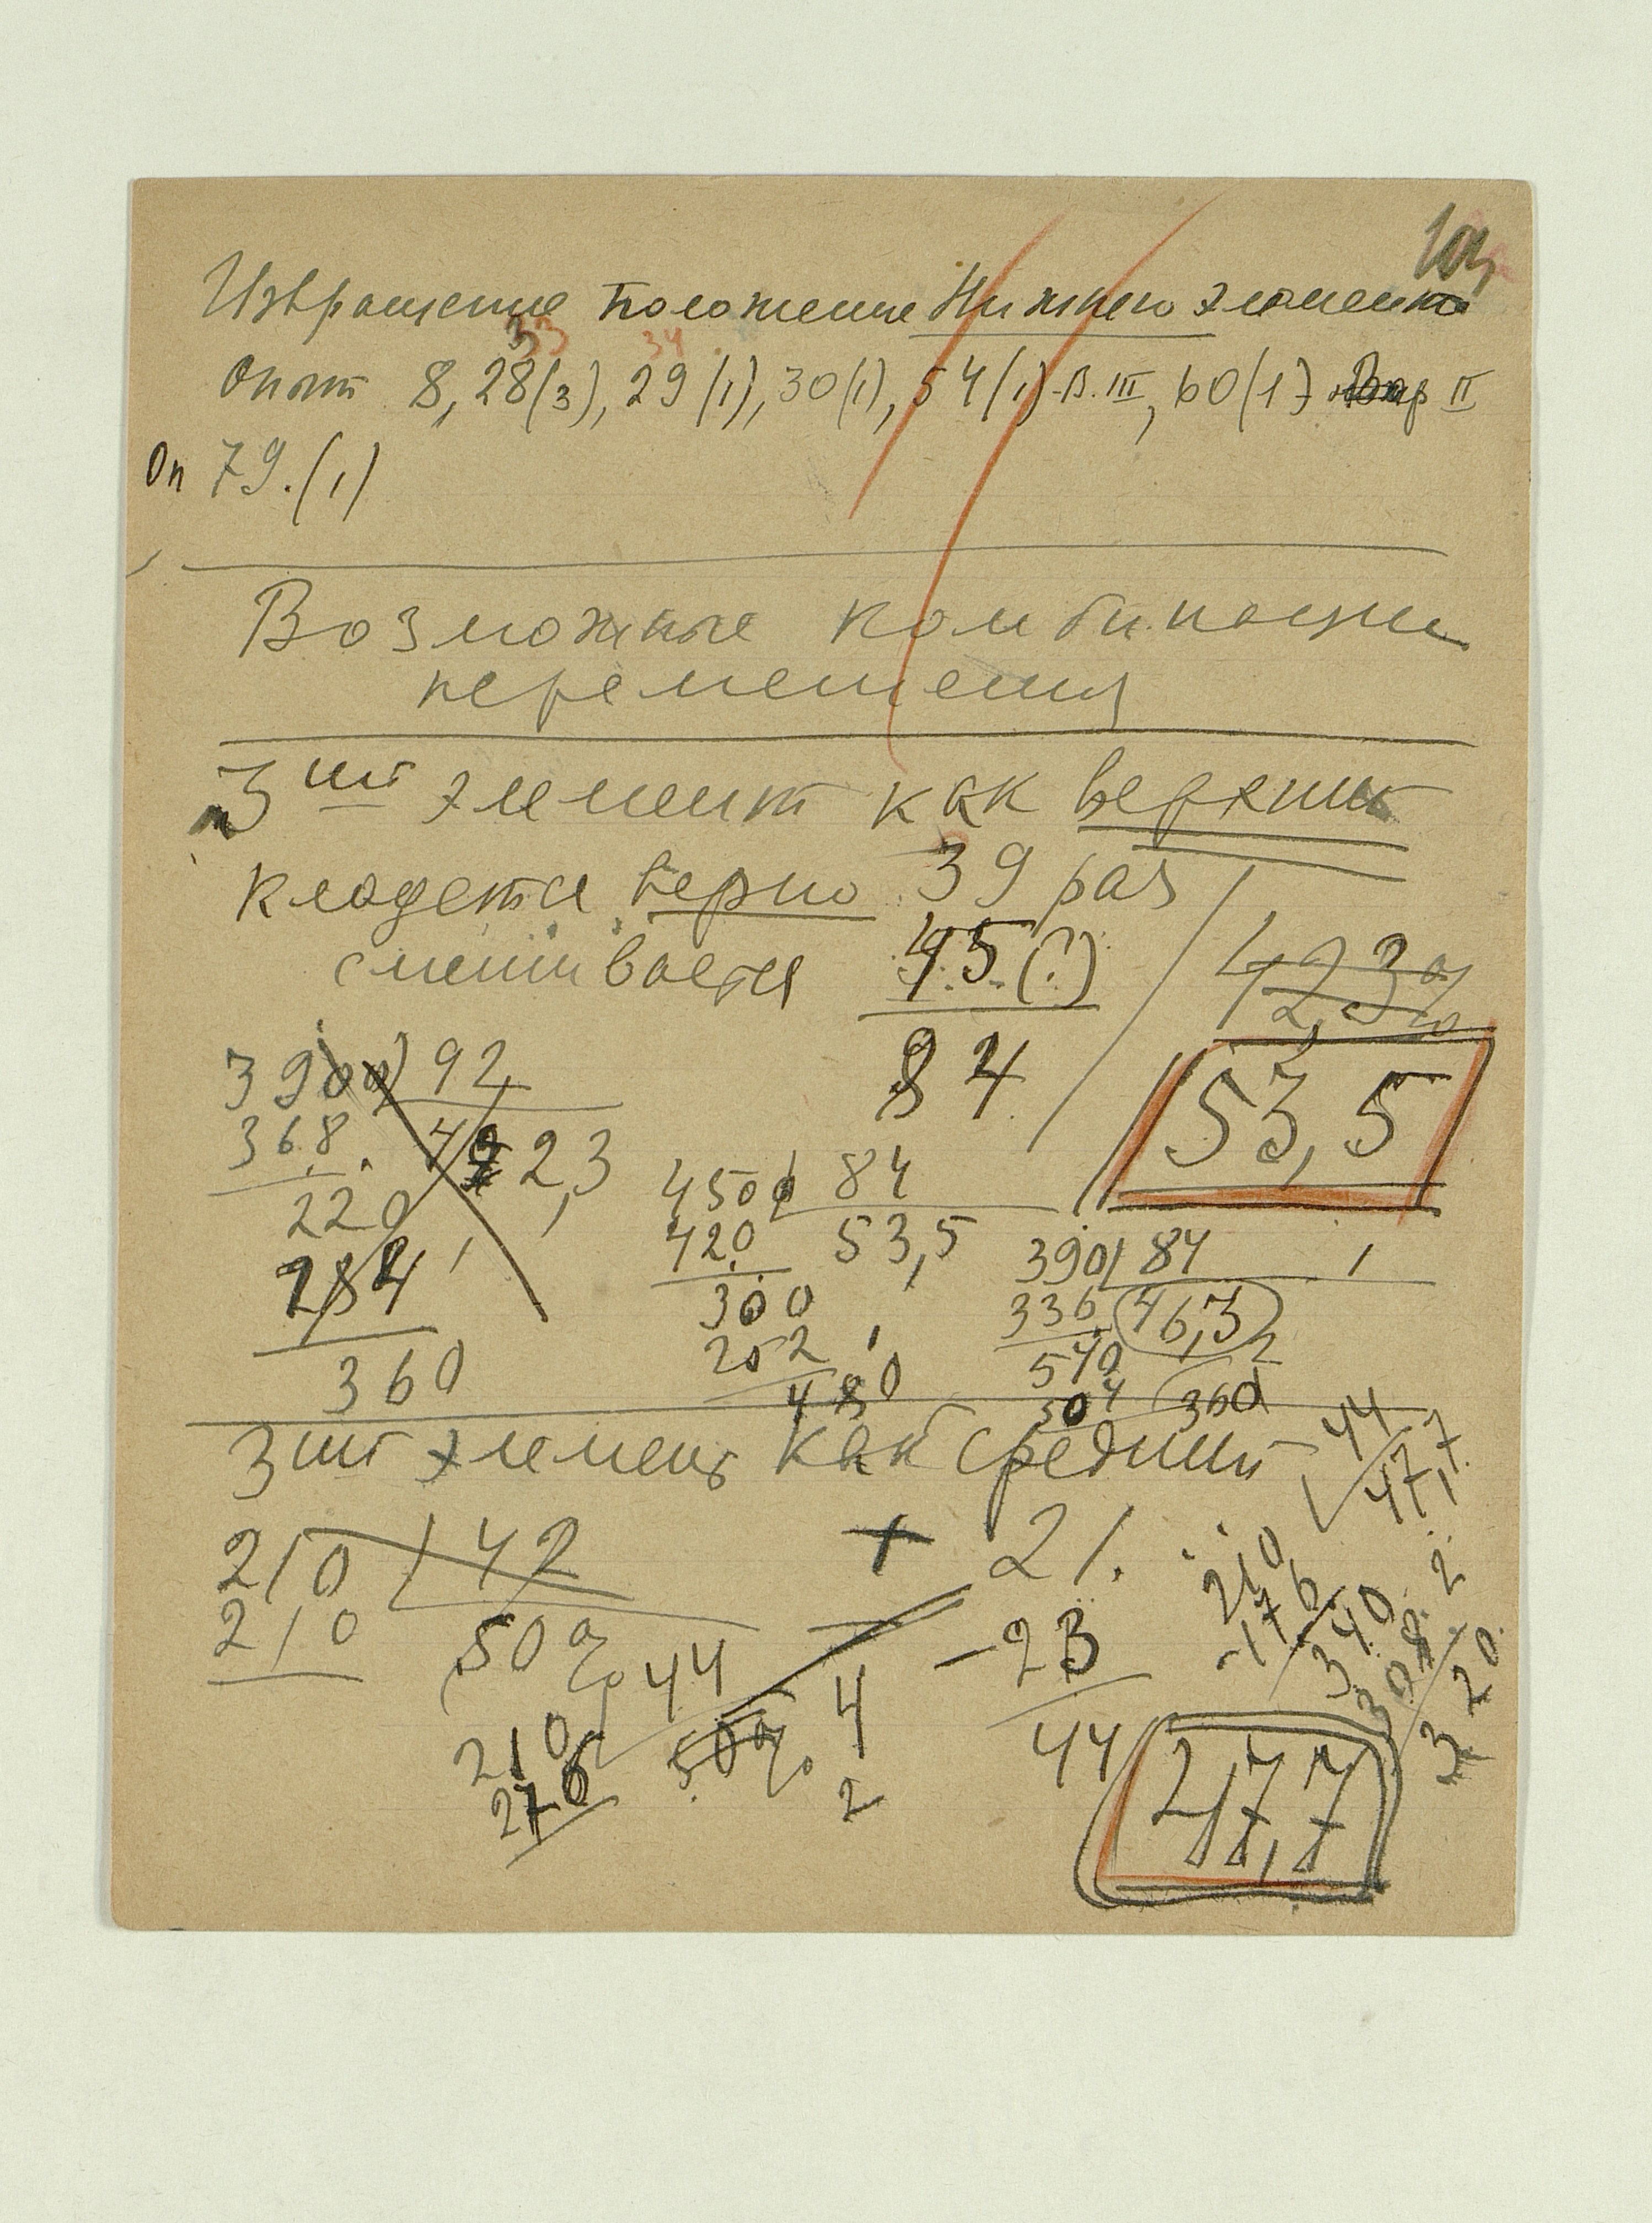 104
Извращение положение Нижнего элемента
33 34
Опыт 8, 28(3), 29(1), 30(1), 54(1)-В.III, 60(1) Вар II
Оп 79.(1)
Возможные комбинации
перемещения
3ий элемент как верхний
кладется верно 39 раз
смешивается 45(?)
84
42,3%
53,5
3900 92
368 42,3
220
184
360
4500 84
420 53,5
300
252
480
390 84
336 46,3
540 2
504 360
3ий элемент как средний
44
47,7
210 42
210 50%
+ 21.
- 23
44
47,7
44
210 50% 4
176 2
210
-176
340
308 2
320